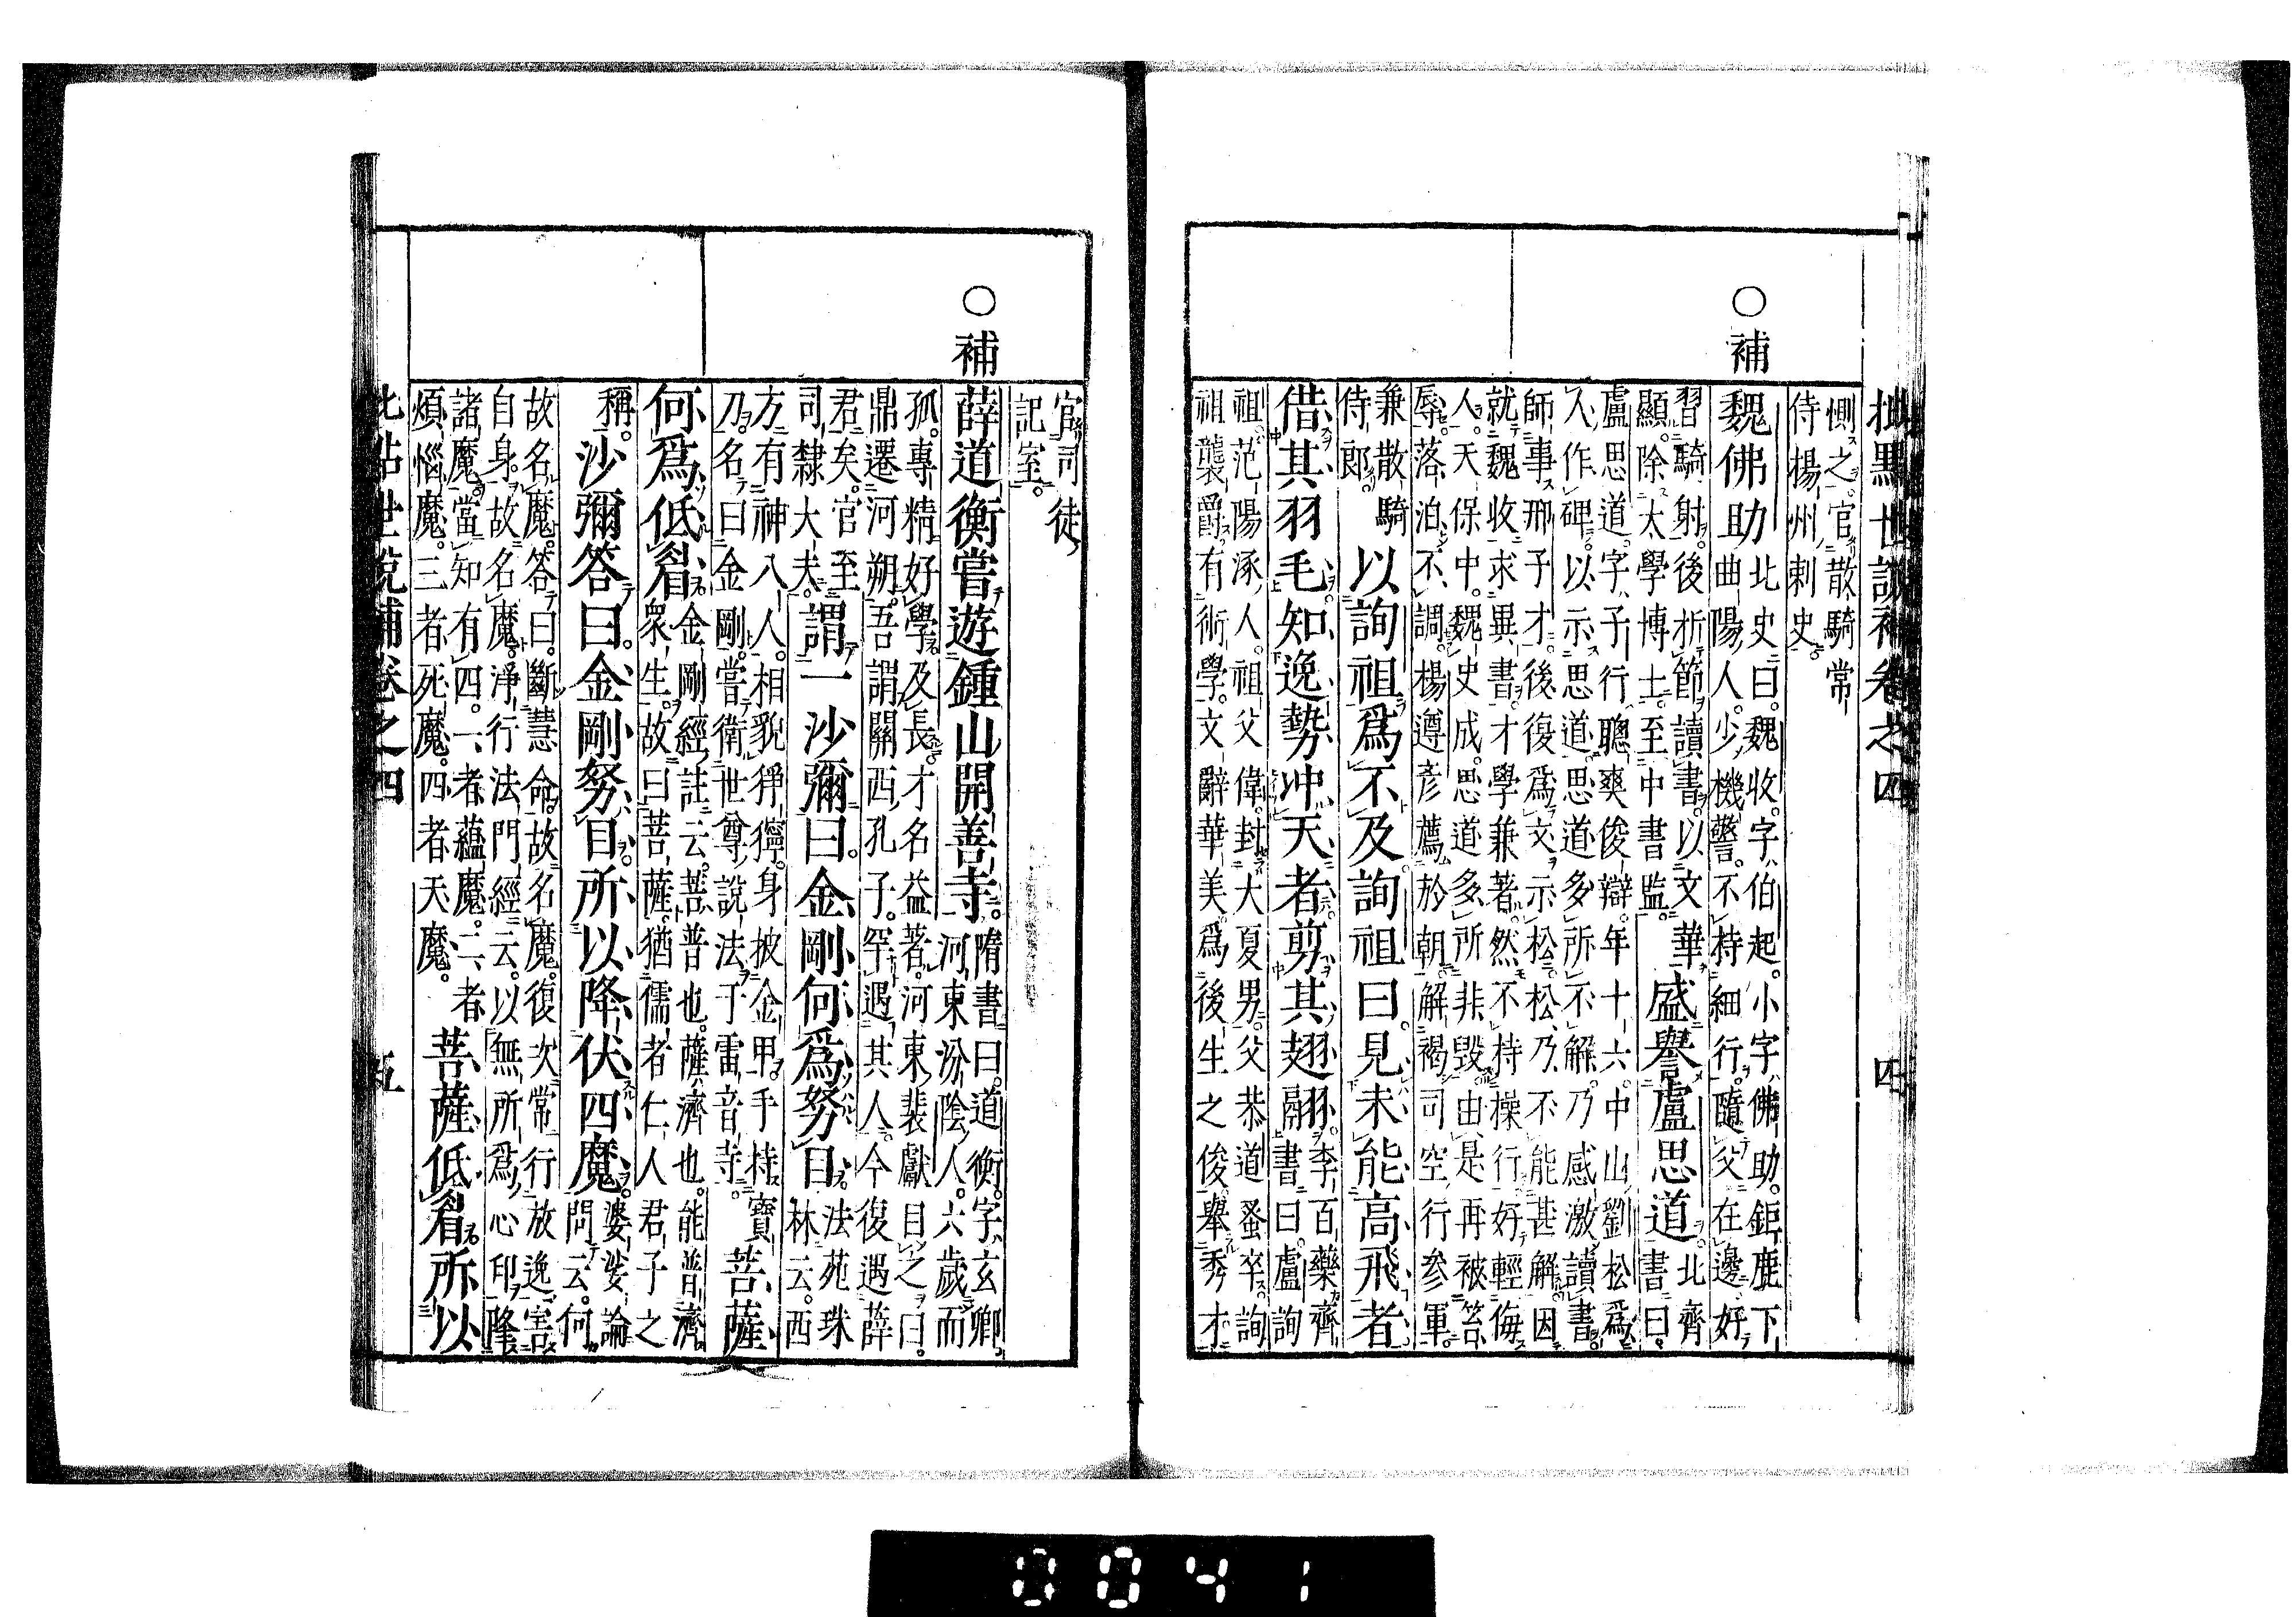 批點世說補卷之四　四
惻之官散騎常
侍楊州刺史
○補
魏佛助北史曰魏收字伯起小字佛助鉅鹿下
曲陽人少機警不持細行隨父在邊好
習騎射後折節讀書以文華
顯除太學博士至中書監盛譽盧思道北齊
書曰
盧思道字子行聰爽俊辯年十六中山劉松爲
人作碑以示思道思道多所不解乃感激讀書
師事邢子才後復爲文示松松乃不能甚解因
就魏收求異書才學兼著然不持操行好輕侮
人天保中魏史成思道多所非毀由是再被笞
辱落泊不調楊遵彥薦於朝解褐司空行參軍
兼散騎
侍郎以詢祖爲不及詢祖曰見未能高飛者
借其羽毛知逸勢冲天者剪其翅翮李百藥齊
書曰盧詢
祖范陽涿人祖父偉封大夏男父恭道蚤卒詢
祖襲爵有術學文辭華美爲後生之俊舉秀才
官司徒
記室
○補
薛道衡嘗遊鍾山開善寺隋書曰道衡字玄卿
河東汾陰人六歲而
孤專精好學及長才名益著河東裴讞目之曰
鼎遷河朔吾謂關西孔子罕遇其人今復遇薛
君矣官至
司隸大夫謂一沙彌曰金剛何爲努目法苑珠
林云西
方有神八人相貌猙獰身披金甲手持寶
刀名曰金剛嘗衛世尊說法于雷音寺菩薩
何爲低眉金剛經註云菩普也薩濟也能普濟
衆生故曰菩薩猶儒者仁人君子之
稱沙彌答曰金剛努目所以降伏四魔婆娑論
問云何
故名魔答曰斷慧命故名魔復次常行放逸害
自身故名魔淨行法門經云以無所爲心印隆
諸魔當知有四一者蘊魔二者
煩惱魔三者死魔四者天魔菩薩低眉所以
批點世說補卷之四　五
0041